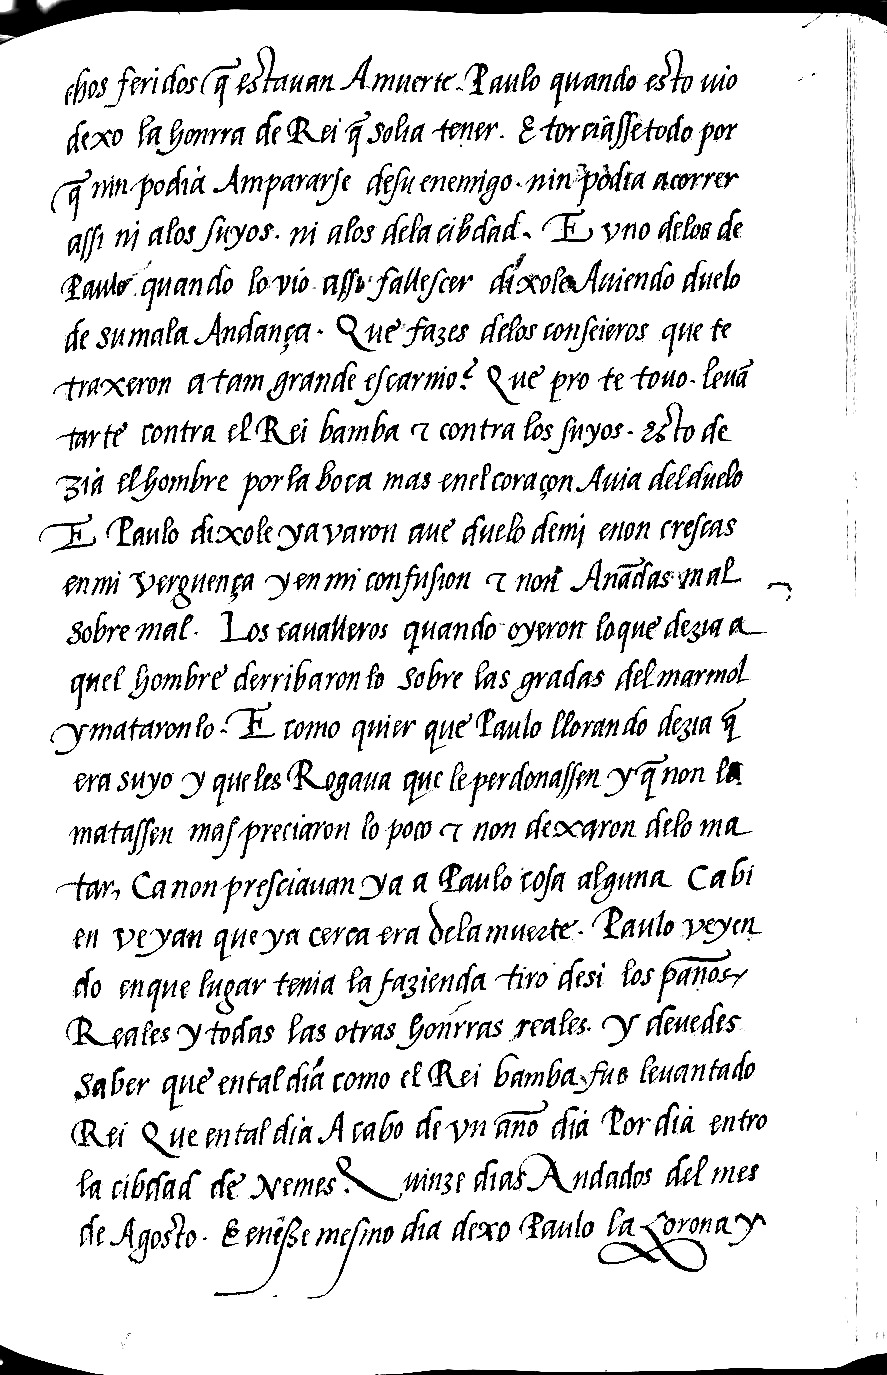 chos feridos q̃ estauan A muerte. Paulo quando esto uio
dexo la honrra de Rei q̃ solia tener. E torciasse todo por
q̃ nin podia Ampararse desu enemigo. nin podia acorrer
assi nj alos suyos. ni alos dela cibdad. E vno delos de
Paulo quando lo vio assi fallescer dixole Auiendo duelo
de su mala Andança. Que fazes delos conseieros que te
traxeron a tam grande escarnio? Que pro te touo. leuã
tarte contra el Rei bamba ⁊ contra los suyos. Esto de
zia el hombre por la boca mas enel coraçon Auia del duelo
E Paulo dixole ya varon aue duelo demj enon crescas
en mi verguença y en mi confusion ⁊ non Anãdas mal
sobre mal. Los caualleros quando oyeron lo que dezia a
quel hombre derribaron lo sobre las gradas del marmol
y mataron lo. E como quier que Paulo llorando dezia q̃
era suyo y que les Rogaua que le perdonassen y q̃ non lo
matassen mas preciaron lo poco ⁊ non dexaron delo ma
tar, Ca non presciauan ya a Paulo cosa alguna Ca bi
en veyan que ya cerca era dela muerte. Paulo veyen
do en que lugar tenia la fazienda tiro desi los paños
Reales y todas las otras honrras reales. y deuedes
saber que en tal dia como el Rei bamba fue leuantado
Rei Que en tal dia A cabo de vn año dia Por dia entro
la cibdad de Nemes. Quinze dias Andados del mes
de Agosto. E enesse mesmo dia dexo Paulo la Corona y